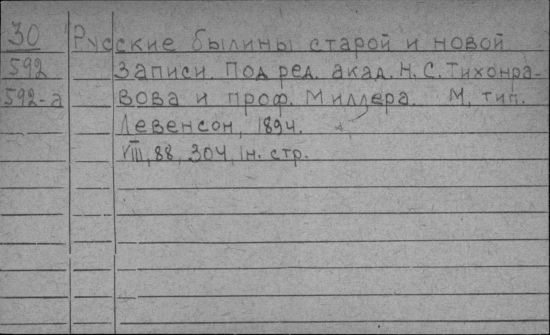 30 Русские былины старой и новой
592 записи. Под ред. акад. Н. С. Тихонра-
592-а вова и проф. Миллера. М, тип.
Левенсон, 1894.
VIII, 88, 304, 1н. стр.